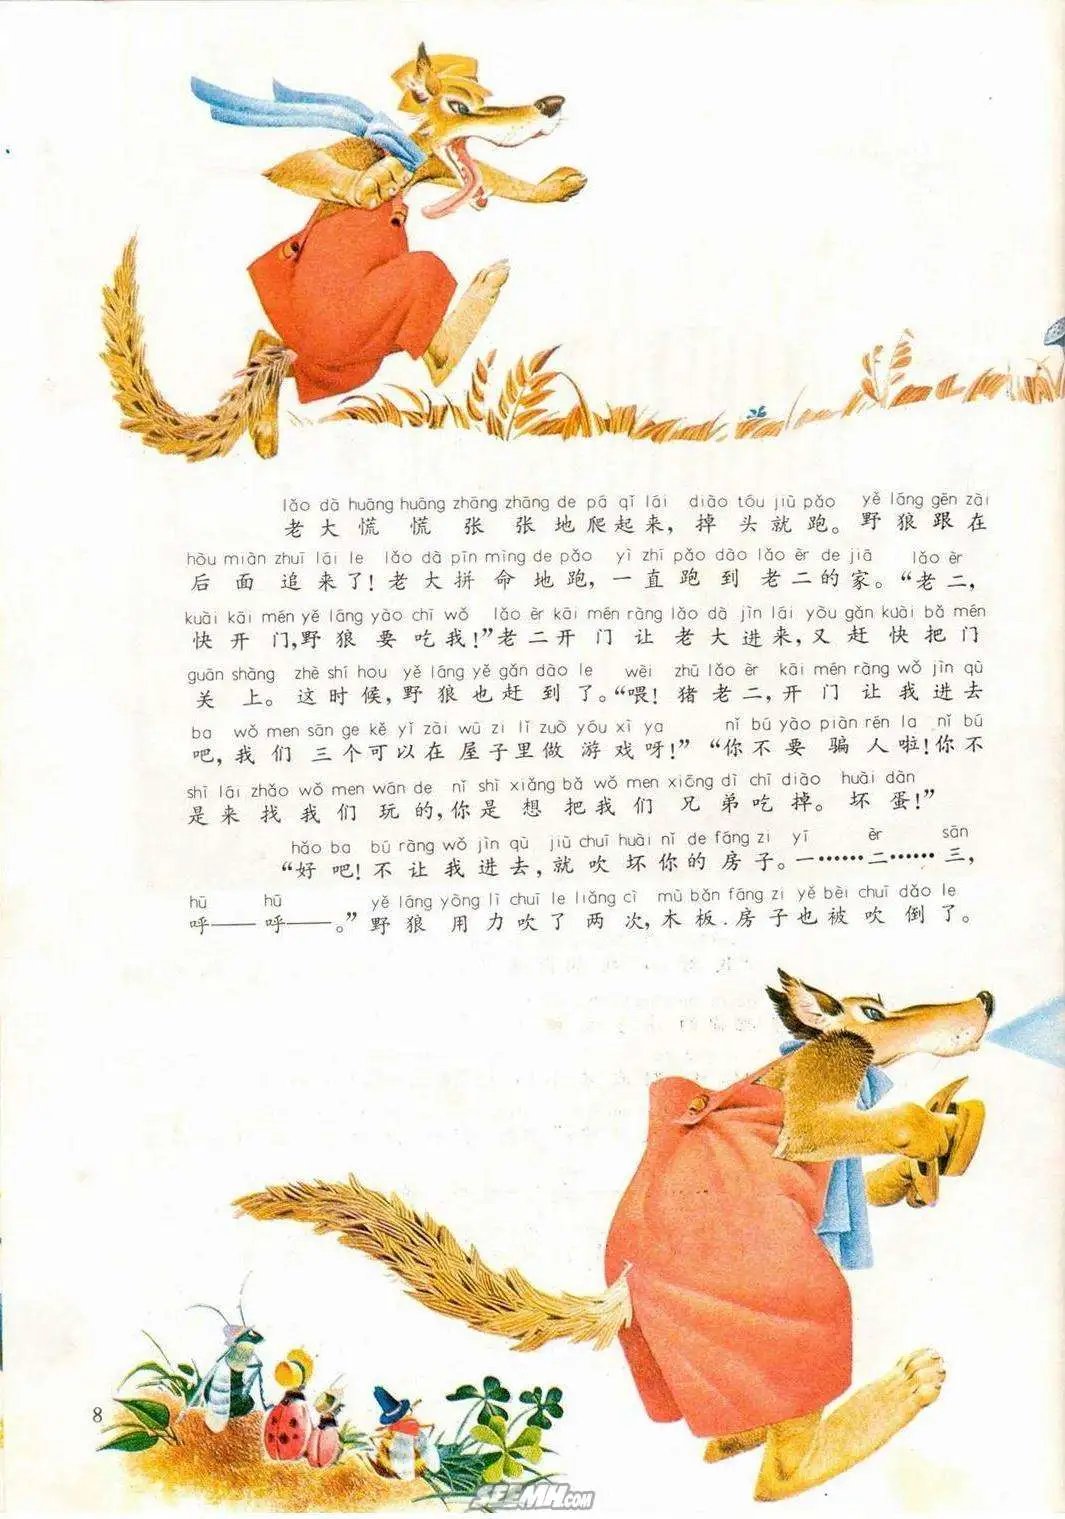 lǎo dà huāng huāng zhāng zhāng de pá qǐ lái diào tóu jiù pǎo yě láng gēn zài
老大慌慌张张地爬起来，掉头就跑。野狼跟在
hòu miàn zhuī lái le lǎo dà pīn mìng de pǎo yì zhí pǎo dào lǎo èr de jiā lǎo èr
后面追来了！老大拼命地跑，一直跑到老二的家。“老二，
kuài kāi mén yě láng yào chī wǒ lǎo èr kāi mén ràng lǎo dà jìn lái yòu gǎn kuài bǎ mén
快开门，野狼要吃我！”老二开门让老大进来，又赶快把门
guān shàng zhè shí hou yě láng yě gǎn dào le wèi zhū lǎo èr kāi mén ràng wǒ jìn qù
关上。这时候，野狼也赶到了。“喂！猪老二，开门让我进去
ba wǒ men sān ge kě yǐ zài wū zi lǐ zuò yóu xì ya nǐ bú yào piàn rén la nǐ bú
吧，我们三个可以在屋子里做游戏呀！”“你不要骗人啦！你不
shì lái zhǎo wǒ men wán de nǐ shì xiǎng bǎ wǒ men xiōng dì chī diào huài dàn
是来找我们玩的，你是想把我们兄弟吃掉。坏蛋！”
hǎo ba bú ràng wǒ jìn qù jiù chuī huài nǐ de fáng zi yī èr sān
“好吧！不让我进去，就吹坏你的房子。一……二……三，
hū hū yě láng yòng lì chuī le liǎng cì mù bǎn fáng zi yě bèi chuī dǎo le
呼——呼——。”野狼用力吹了两次，木板房子也被吹倒了。
8
SEEMH.COM